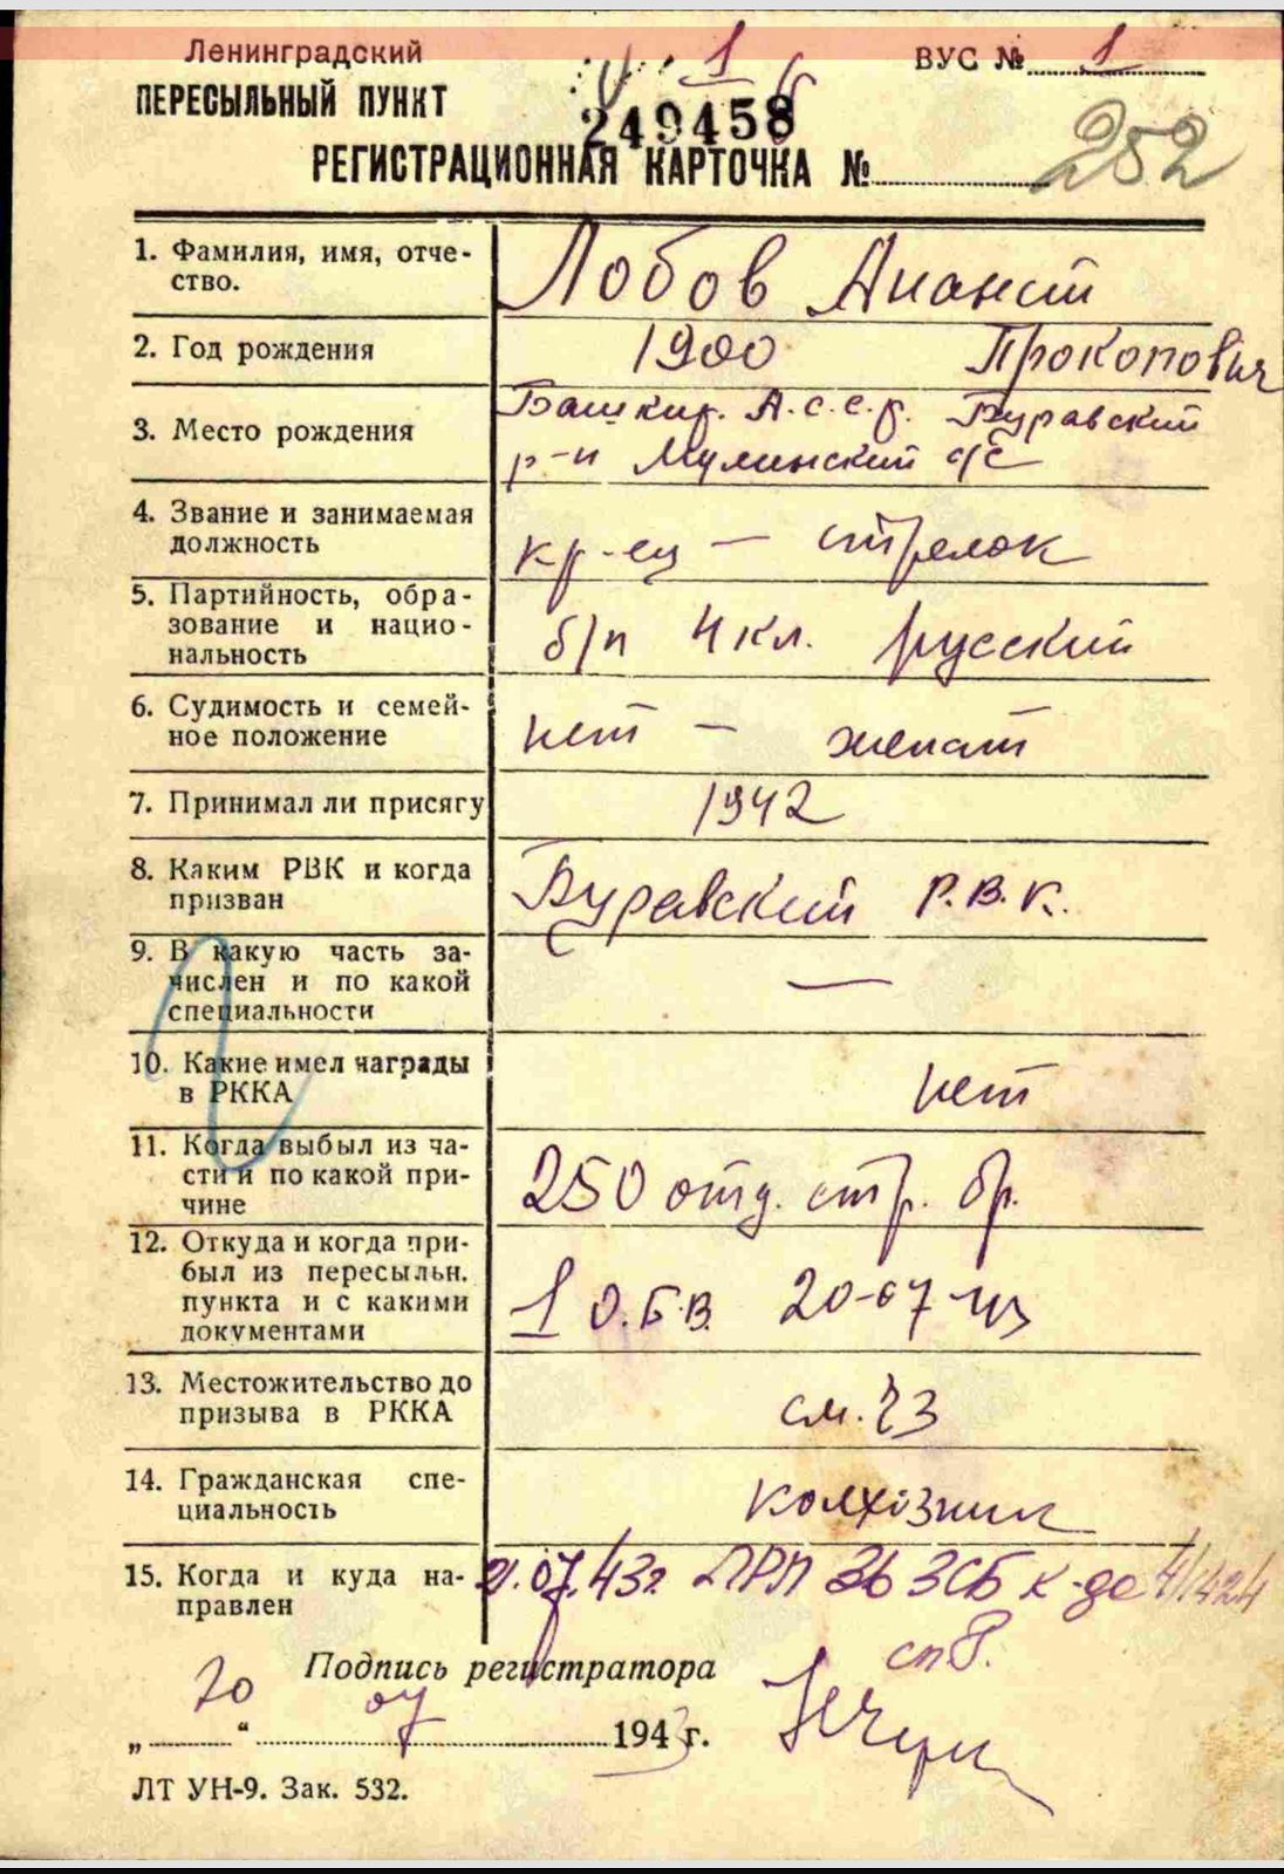 Ленинградский
ВУС № 1
1
ПЕРЕСЫЛЬНЫЙ ПУНКТ
249458
РЕГИСТРАЦИОННАЯ КАРТОЧКА №
252
1. Фамилия, имя, отче-
ство.
Лобов Ананий
Прокопович
2. Год рождения
1900
3. Место рождения
Башкир. А.с.с.р. Буравский
р-н Мулинский с/с
4. Звание и занимаемая
должность
кр-ец — стрелок
5. Партийность, обра-
зование и нацио-
нальность
б/п 4 кл. русский
6. Судимость и семей-
ное положение
нет — женат
7. Принимал ли присягу
1942
8. Каким РВК и когда
призван
Буравский Р.В.К.
9. В какую часть за-
числен и по какой
специальности
—
10. Какие имел награды
в РККА
нет
11. Когда выбыл из ча-
сти и по какой при-
чине
250 отд. стр. бр.
12. Откуда и когда при-
был из пересыльн.
пункта и с какими
документами
1 О.Б.В. 20-07-43
13. Местожительство до
призыва в РККА
см. 3
14. Гражданская спе-
циальность
колхозник
15. Когда и куда на-
правлен
21.07.43г. 36 ЗСБ к-да
Подпись регистратора
„ 20 “ 07 1943 г.
ЛТ УН-9. Зак. 532.